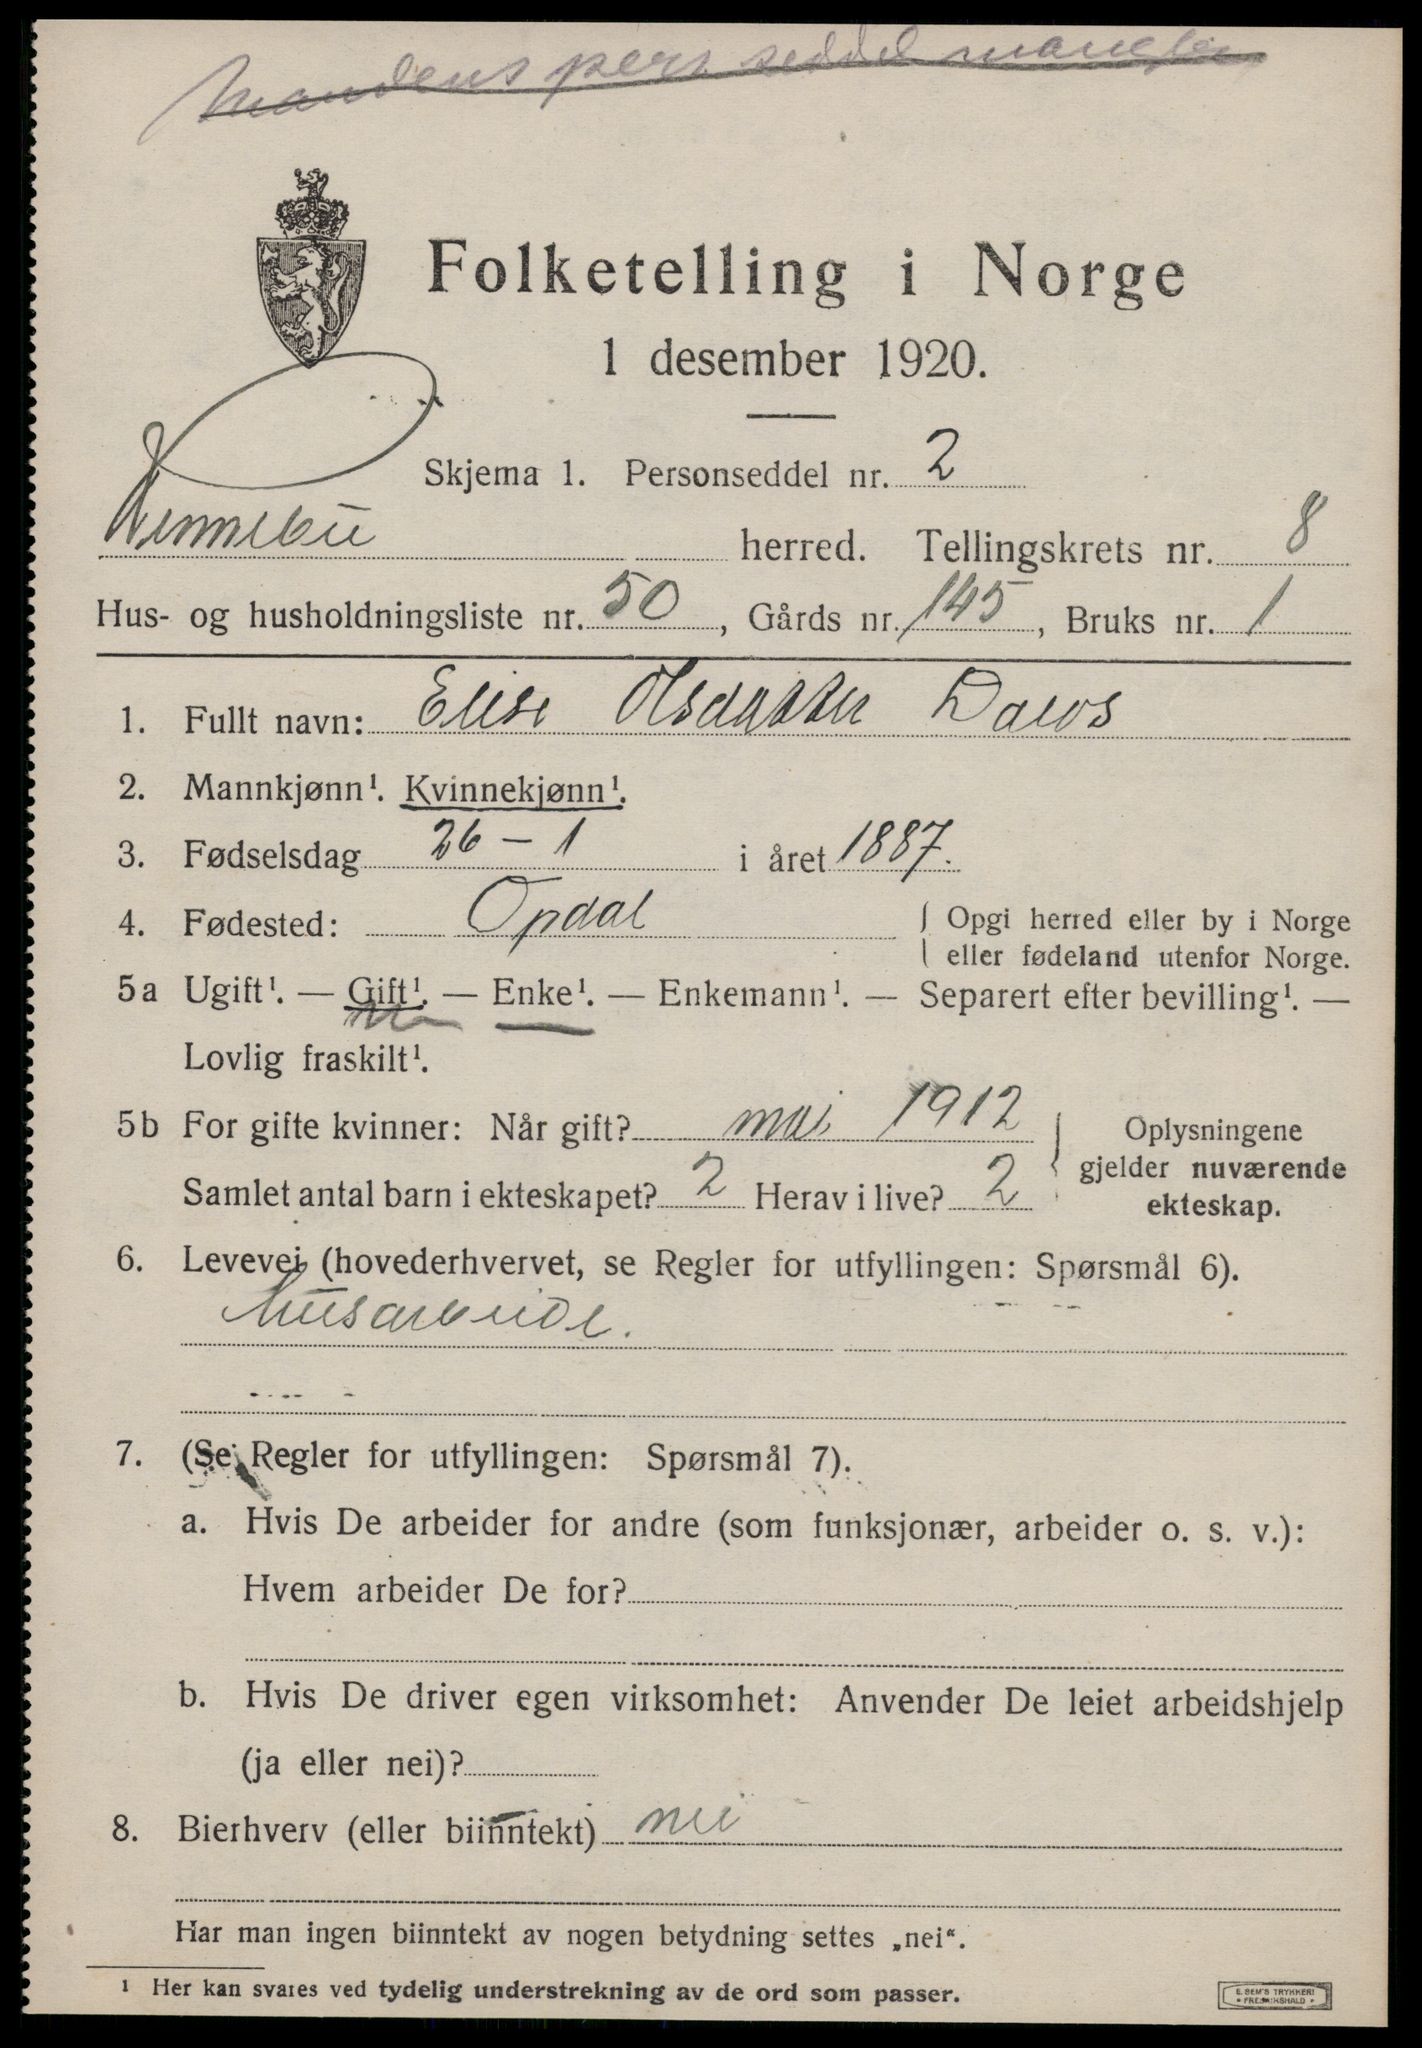 Mandens pers seddel mangler
Folketelling i Norge
1 desember 1920.
Skjema 1. Personseddel nr. 2
Rennebu herred. Tellingskrets nr. 8
Hus- og husholdningsliste nr. 50, Gårds nr. 145, Bruks nr. 1
1. Fullt navn: Elise Olsdatter
2. Mannkjønn¹. Kvinnekjønn¹.
3. Fødselsdag 26 - 1 i året 1887.
4. Fødested: Opdal { Opgi herred eller by i Norge
eller fødeland utenfor Norge.
5a Ugift¹. — Gift¹. — Enke¹. — Enkemann¹. — Separert efter bevilling¹. —
Lovlig fraskilt¹.
5b For gifte kvinner: Når gift? mai 1912 } Oplysningene
gjelder nuværende
Samlet antal barn i ekteskapet? 2 Herav i live? 2 ekteskap.
6. Levevei (hovederhvervet, se Regler for utfyllingen: Spørsmål 6).
Husarbeide.
7. (Se Regler for utfyllingen: Spørsmål 7).
a. Hvis De arbeider for andre (som funksjonær, arbeider o. s. v.):
Hvem arbeider De for?
b. Hvis De driver egen virksomhet: Anvender De leiet arbeidshjelp
(ja eller nei)?
8. Bierhverv (eller biinntekt) nei
Har man ingen biinntekt av nogen betydning settes „nei“.
¹ Her kan svares ved tydelig understrekning av de ord som passer.
E. SEM'S TRYKKERI
• FREDRIKSHALD •